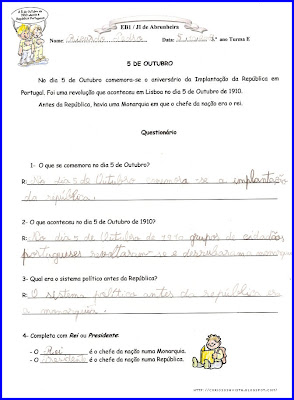 EB1 / JI de Abrunheira
Nome: Ricardo Pedro Data: 3º ano Turma E
5 DE OUTUBRO
No dia 5 de Outubro comemora-se o aniversário da Implantação da República em
Portugal. Foi uma revolução que aconteceu em Lisboa no dia 5 de Outubro de 1910.
Antes da República, havia uma Monarquia em que o chefe da nação era o rei.
Questionário
1- O que se comemora no dia 5 de Outubro?
R: No dia 5 de Outubro comemora-se a implantação
da república.
2- O que aconteceu no dia 5 de Outubro de 1910?
R: No dia 5 de Outubro de 1910 grupos de cidadãos
portugueses revoltaram-se e derrubaram a monarquia
3- Qual era o sistema político antes da República?
R: O sistema político antes da república era
a monarquia.
4- Completa com Rei ou Presidente:
- O Rei é o chefe da nação numa Monarquia.
- O Presidente é o chefe da nação numa República.